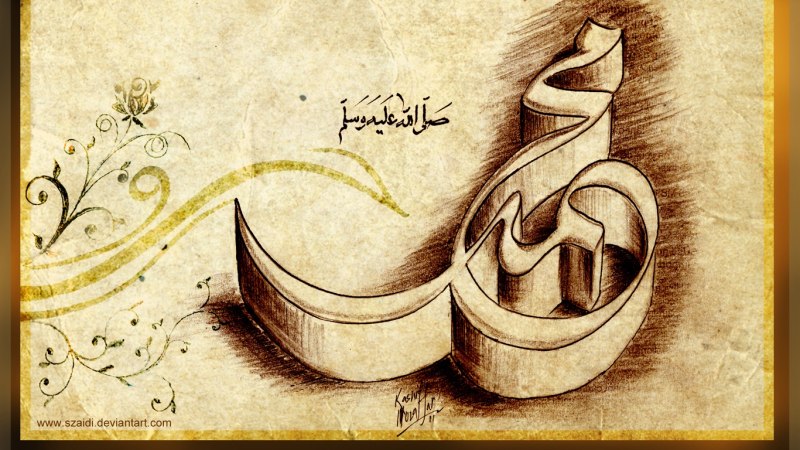 صَلَّى اللّٰه عَلَيْهِ وَسَلَّم
محمد
www.szaidi.deviantart.com